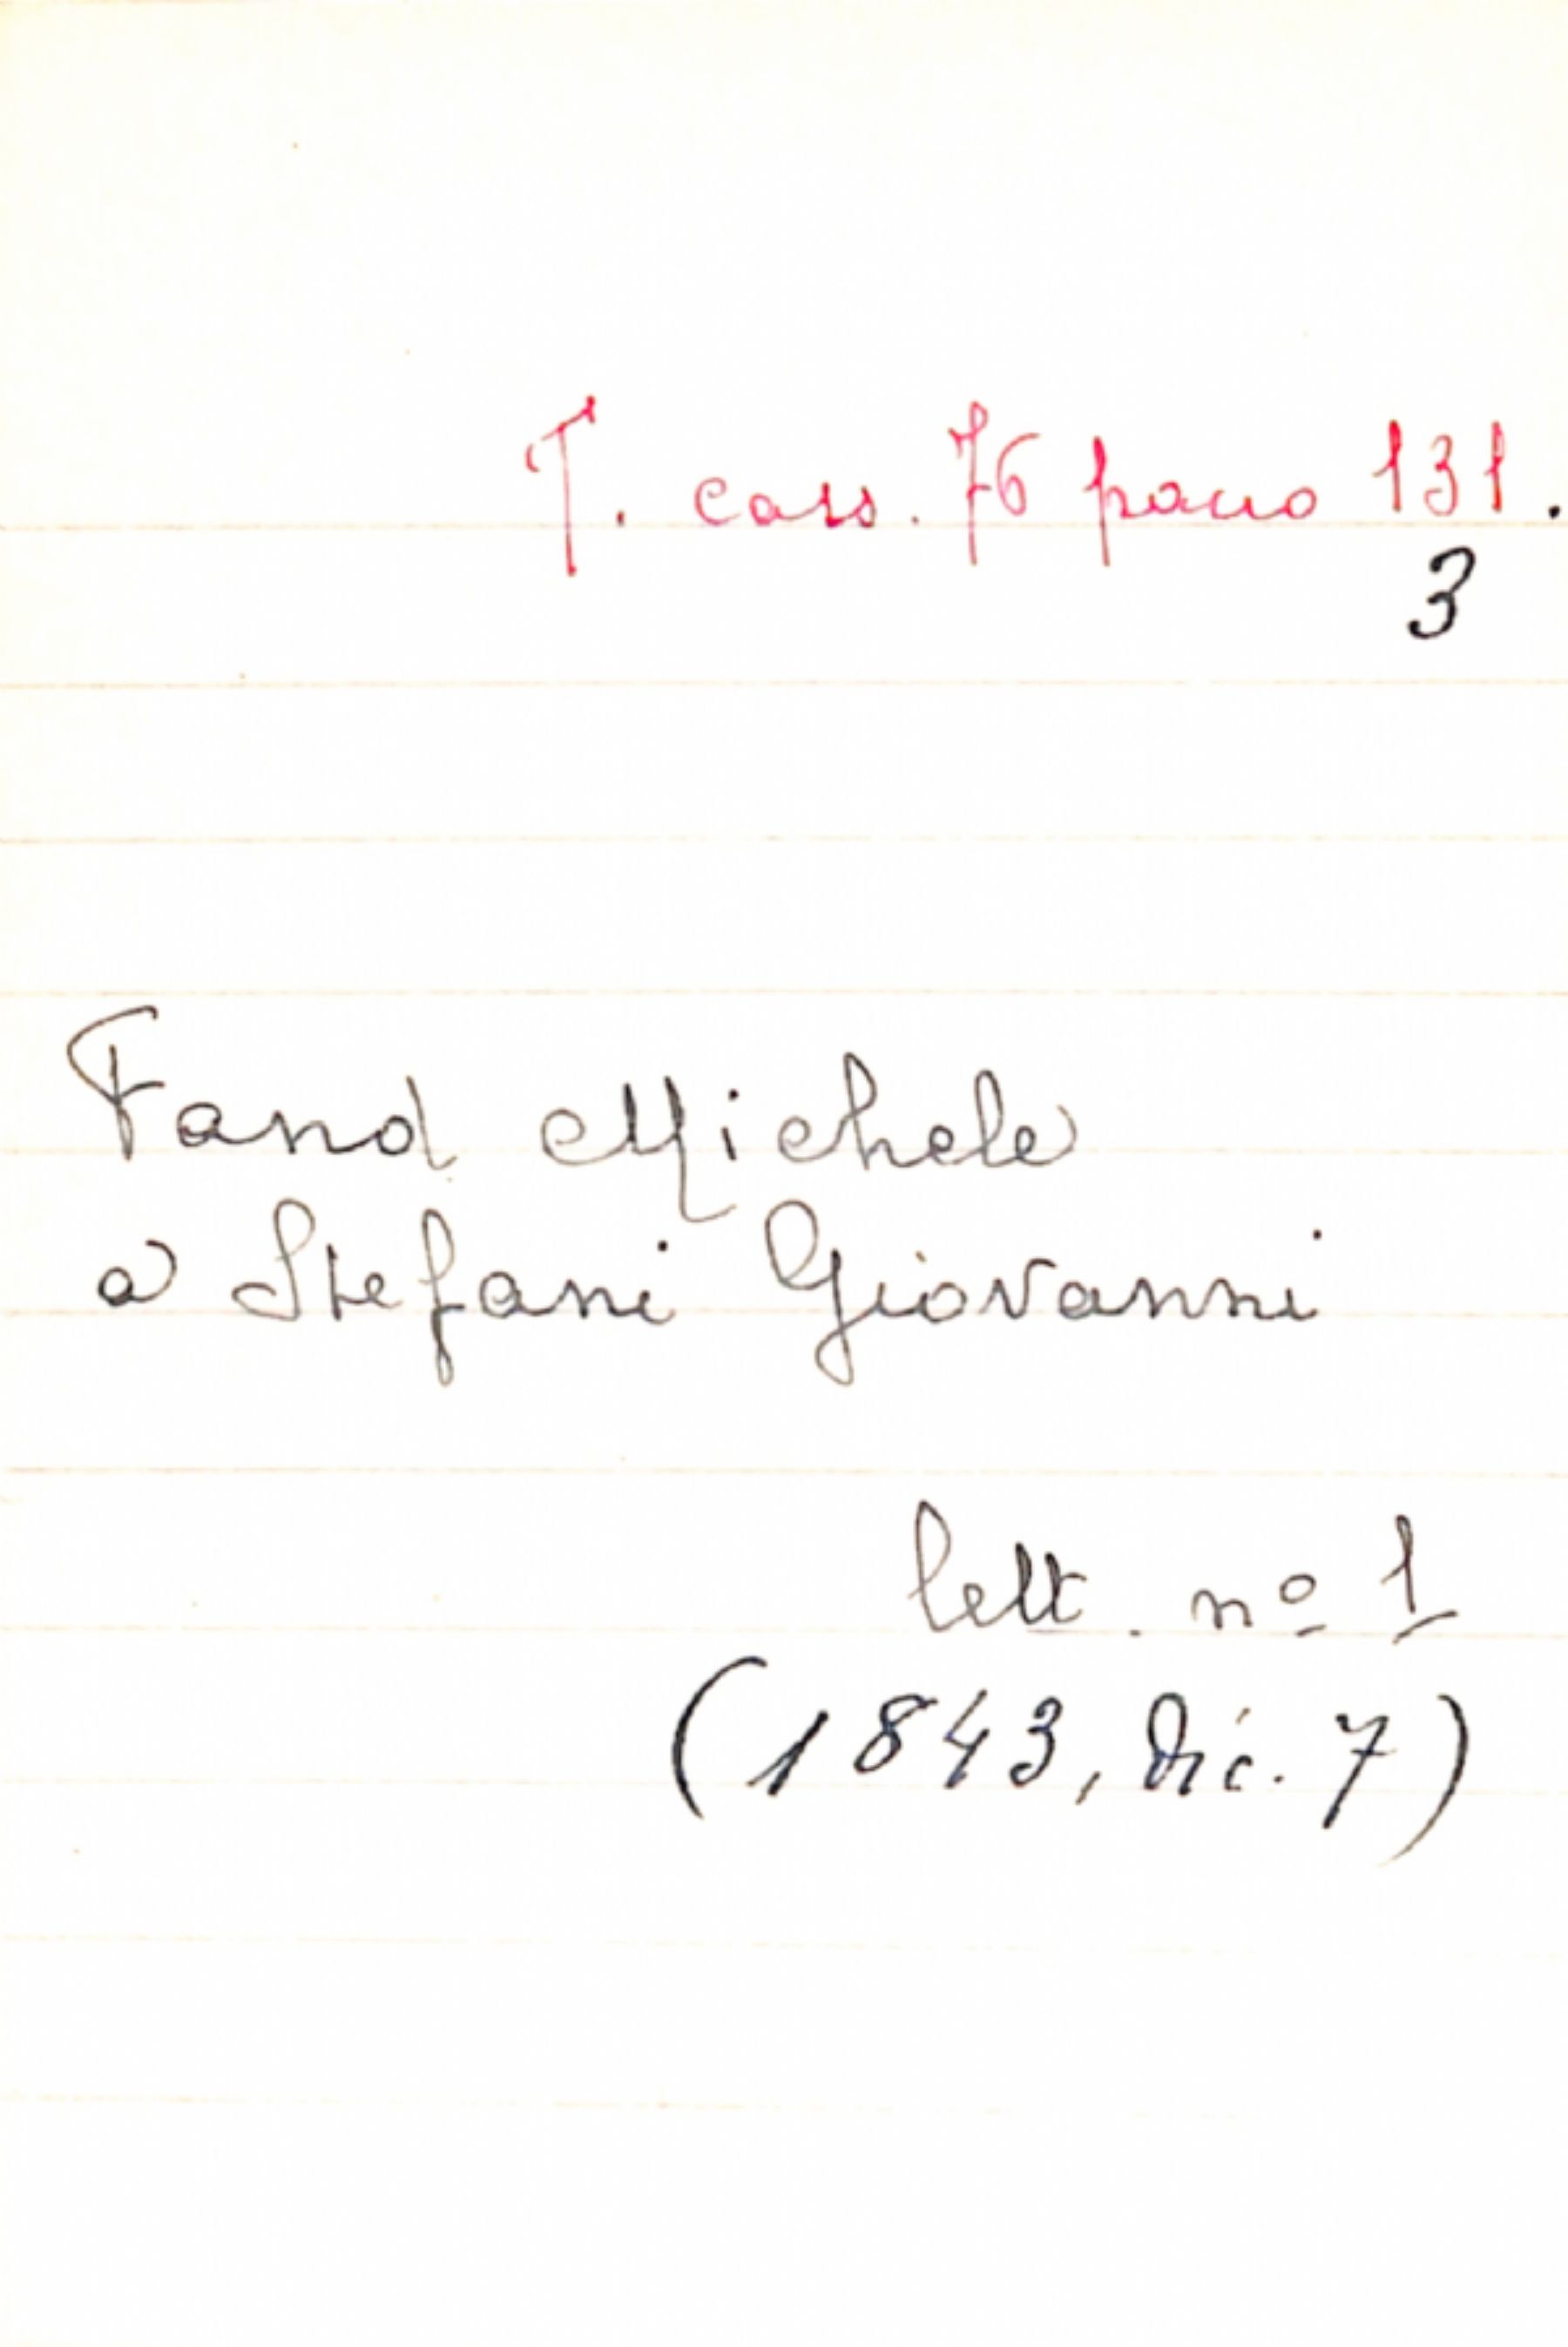 T. cass. 76 pacco 131.
3
Fand Michele
a Stefani Giovanni
lett. nº 1
(1843, Dic. 7)